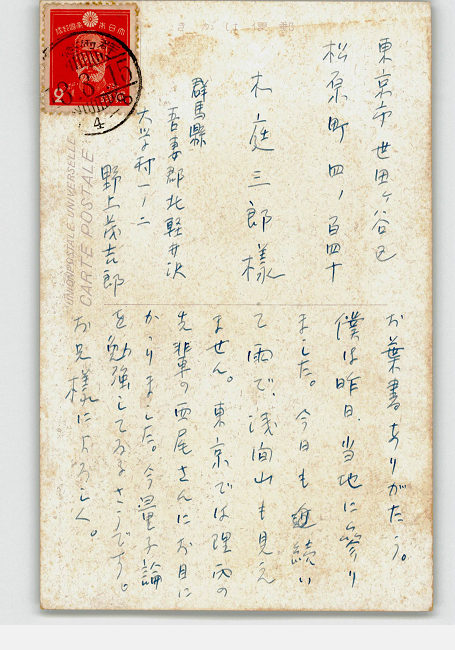 きかは便郵
大日本帝國郵便
UNION POSTALE UNIVERSELLE
CARTE POSTALE
東京市世田ヶ谷区
松原町四ノ百四十
木庭三郎様
群馬縣
吾妻郡北軽井沢
大学村一ノ二
野上茂吉郎
お葉書ありがたう。
僕は昨日、当地に参り
ました。今日も続い
て雨で、浅間山も見え
ません。東京では理西の
先輩の西尾さんにお目に
かゝりました。今量子論
を勉強してゐるさうです。
お兄様によろしく。